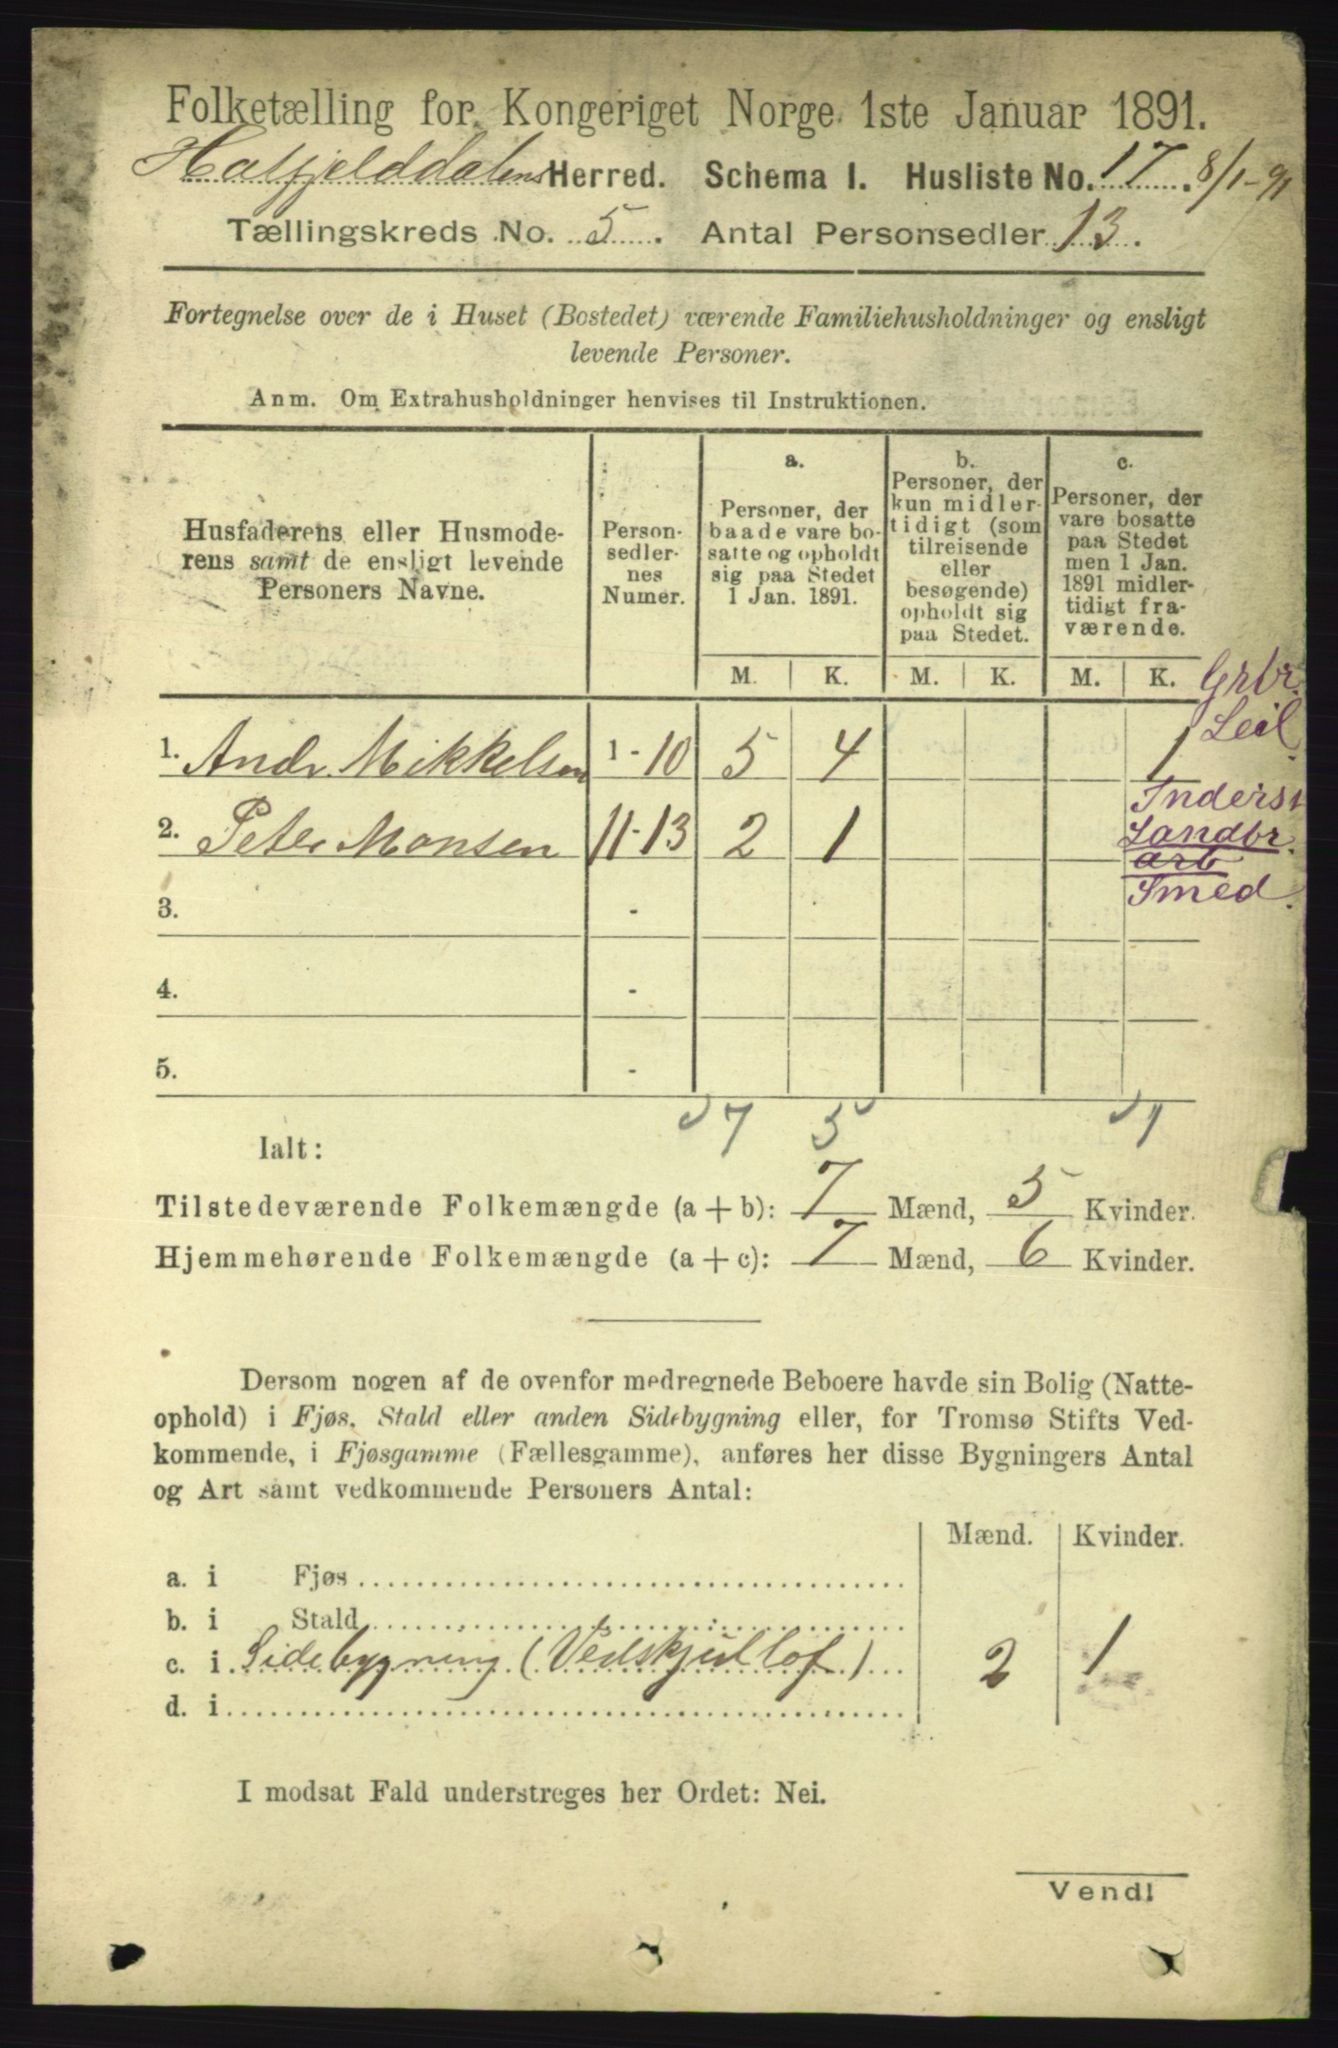 Folketælling for Kongeriget Norge 1ste Januar 1891.
Hatfjelddalens Herred. Schema I. Husliste No. 17. 8/1-91
Tællingskreds No. 5. Antal Personsedler 13.
Fortegnelse over de i Huset (Bostedet) værende Familiehusholdninger og ensligt
levende Personer.
Anm. Om Extrahusholdninger henvises til Instruktionen.
Husfaderens eller Husmode-
rens samt de ensligt levende
Personers Navne.
Person-
sedler-
nes
Numer.
a.
Personer, der
baade vare bo-
satte og opholdt
sig paa Stedet
1 Jan. 1891.
b.
Personer, der
kun midler-
tidigt (som
tilreisende
eller
besøgende)
opholdt sig
paa Stedet.
c.
Personer, der
vare bosatte
paa Stedet
men 1 Jan.
1891 midler-
tidigt fra-
værende.
M. K. M. K. M. K. Grbr.
Leil.
1. Andr. Mikkelsen 1-10 5 4 1
Inderst
2. Peter Monsen 11-13 2 1 Landbr.
arb
Smed.
3. -
4. -
5. -
7 5 1
Ialt:
Tilstedeværende Folkemængde (a + b): 7 Mænd, 5 Kvinder.
Hjemmehørende Folkemængde (a + c): 7 Mænd, 6 Kvinder.
Dersom nogen af de ovenfor medregnede Beboere havde sin Bolig (Natte-
ophold) i Fjøs, Stald eller anden Sidebygning eller, for Tromsø Stifts Ved-
kommende, i Fjøsgamme (Fællesgamme), anføres her disse Bygningers Antal
og Art samt vedkommende Personers Antal:
Mænd. Kvinder.
a. i Fjøs
b. i Stald
c. i Sidebygning (Vedskjulloft) 2 1
d. i
I modsat Fald understreges her Ordet: Nei.
Vend!